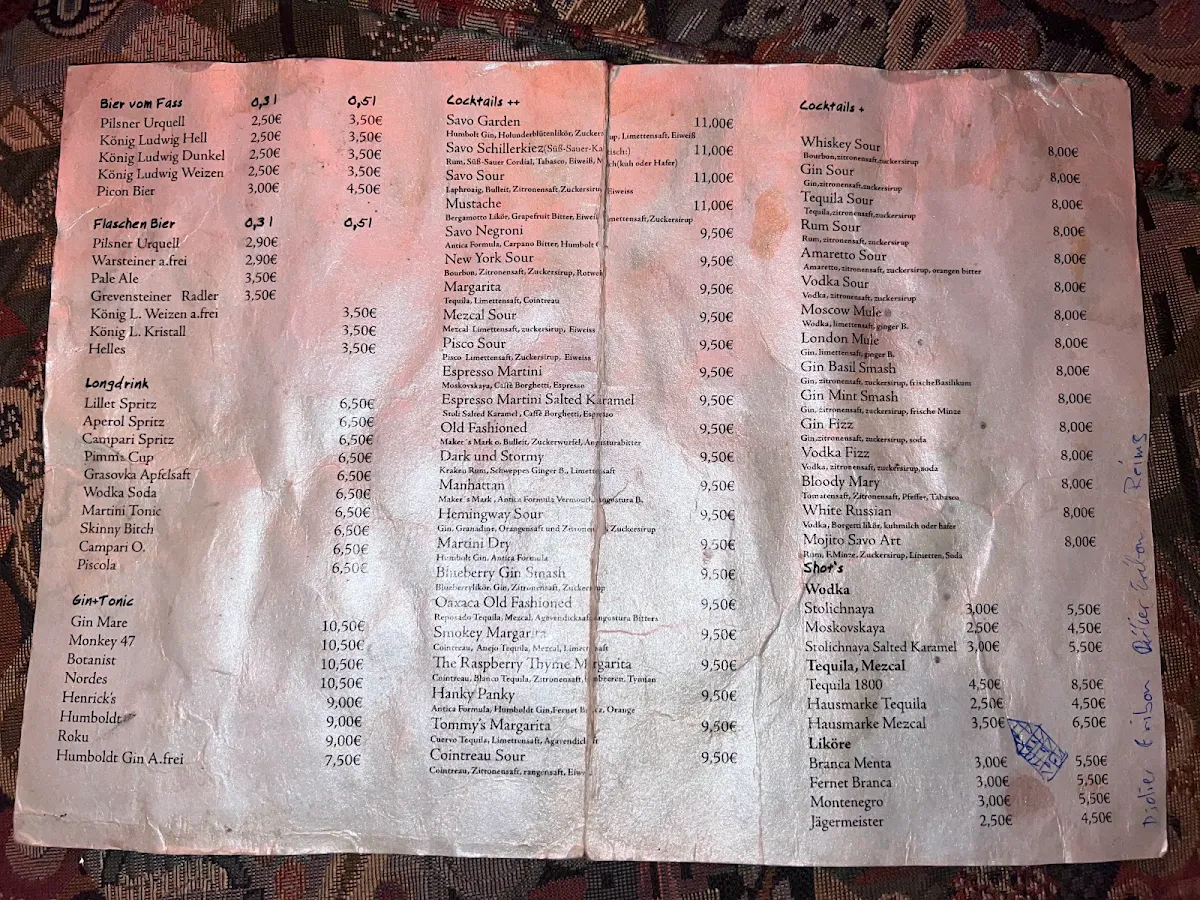 Bier vom Fass 0,3l 0,5l
Pilsner Urquell 2,50€ 3,50€
König Ludwig Hell 2,50€ 3,50€
König Ludwig Dunkel 2,50€ 3,50€
König Ludwig Weizen 2,50€ 3,50€
Picon Bier 3,00€ 4,50€
Flaschen Bier 0,3l 0,5l
Pilsner Urquell 2,90€
Warsteiner a.frei 2,90€
Pale Ale 3,50€
Grevensteiner Radler 3,50€
König L. Weizen a.frei 3,50€
König L. Kristall 3,50€
Helles 3,50€
Longdrink
Lillet Spritz 6,50€
Aperol Spritz 6,50€
Campari Spritz 6,50€
Pimms Cup 6,50€
Grasovka Apfelsaft 6,50€
Wodka Soda 6,50€
Martini Tonic 6,50€
Skinny Bitch 6,50€
Campari O. 6,50€
Piscola 6,50€
Gin+Tonic
Gin Mare 10,50€
Monkey 47 10,50€
Botanist 10,50€
Nordes 10,50€
Henrick's 9,00€
Humboldt 9,00€
Roku 9,00€
Humboldt Gin A.frei 7,50€
Cocktails ++
Savo Garden 11,00€
Humbolt Gin, Holunderblütenlikör, Zuckersirup, Limettensaft, Eiweiß
Savo Schillerkiez(Süß-Sauer-Ka isch:) 11,00€
Rum, Süß-Sauer Cordial, Tabasco, Eiweiß, Milch(kuh oder Hafer)
Savo Sour 11,00€
Laphroaig, Bulleit, Zitronensaft,Zuckersirup, Eiweiss
Mustache 11,00€
Bergamotto Likör, Grapefruit Bitter, Eiweiß, Limettensaft,Zuckersirup
Savo Negroni 9,50€
Antica Formula, Carpano Bitter, Humbolt
New York Sour 9,50€
Bourbon, Zitronensaft, Zuckersirup, Rotwein
Margarita 9,50€
Tequila, Limettensaft, Cointreau
Mezcal Sour 9,50€
Mezcal Limettensaft, zuckersirup, Eiweiss
Pisco Sour 9,50€
Pisco Limettensaft, Zuckersirup, Eiweiss
Espresso Martini 9,50€
Moskovskaya, Caffè Borghetti, Espresso
Espresso Martini Salted Karamel 9,50€
Stoli Salted Karamel, Caffè Borghetti, Espresso
Old Fashioned 9,50€
Maker´s Mark o. Bulleit, Zuckerwürfel, Angusturabitter
Dark und Stormy 9,50€
Kraken Rum, Schweppes Ginger B., Limettsaft
Manhattan 9,50€
Maker´s Mark, Antica Formula Vermouth, Angostura B.
Hemingway Sour 9,50€
Gin, Granadine, Orangensaft und Zitronen Zuckersirup
Martini Dry 9,50€
Humbolt Gin, Antica Formula
Blueberry Gin Smash 9,50€
Blueberrylikör, Gin, Zitronensaft, Zuckersirup
Oaxaca Old Fashioned 9,50€
Reposado Tequila, Mezcal, Agavendicksaft, Angostura Bitters
Smokey Margarita 9,50€
Cointreau, Anejo Tequila, Mezcal, Limettsaft
The Raspberry Thyme Margarita 9,50€
Cointreau, Blanco Tequila, Zitronensaft, Himbreren, Tymian
Hanky Panky 9,50€
Antica Formula, Humboldt Gin,Fernet Branca, Orange
Tommy's Margarita 9,50€
Cuervo Tequila, Limettensaft, Agavendicksaft
Cointreau Sour 9,50€
Cointreau, Zitronensaft, rangensaft, Eiwe
Cocktails +
Whiskey Sour 8,00€
Bourbon,zitronensaft,zuckersirup
Gin Sour 8,00€
Gin,zitronensaft,zuckersirup
Tequila Sour 8,00€
Tequila,zitronensaft,zuckersirup
Rum Sour 8,00€
Rum, zitronensaft, zuckersirup
Amaretto Sour 8,00€
Amaretto, zitronensaft, zuckersirup, orangen bitter
Vodka Sour 8,00€
Vodka, zitronensaft, zuckersirup
Moscow Mule 8,00€
Wodka, limettensaft, ginger B.
London Mule 8,00€
Gin, limettensaft, ginger B.
Gin Basil Smash 8,00€
Gin, zitronensaft, zuckersirup, frischeBasilikum
Gin Mint Smash 8,00€
Gin, zitronensaft, zuckersirup, frische Minze
Gin Fizz 8,00€
Gin,zitronensaft, zuckersirup, soda
Vodka Fizz 8,00€
Vodka, zitronensaft, zuckersirup,soda
Bloody Mary 8,00€
Tomatensaft, Zitronensaft, Pfeffer, Tabasco
White Russian 8,00€
Vodka, Borgetti likör, kuhmilch oder hafer
Mojito Savo Art 8,00€
Rum, F.Minze, Zuckersirup, Limetten, Soda
Shot's
Wodka
Stolichnaya 3,00€ 5,50€
Moskovskaya 2,50€ 4,50€
Stolichnaya Salted Karamel 3,00€ 5,50€
Tequila, Mezcal
Tequila 1800 4,50€ 8,50€
Hausmarke Tequila 2,50€ 4,50€
Hausmarke Mezcal 3,50€ 6,50€
Liköre
Branca Menta 3,00€ 5,50€
Fernet Branca 3,00€ 5,50€
Montenegro 3,00€ 5,50€
Jägermeister 2,50€ 4,50€
Didier Eribon Didier Eribon Reims